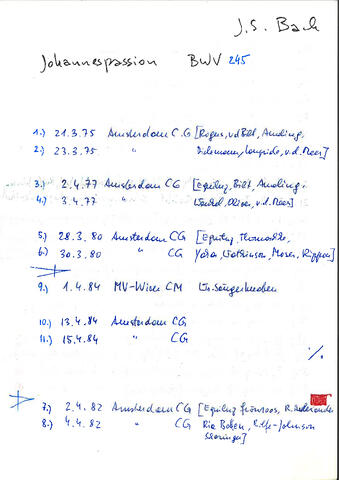 J.S. Bach
Johannespassion BWV 245
1.) 21.3.75 Amsterdam C.G [Rogers, v.d. Bilt, Ameling,
2.) 23.3.75 " v.d. Meer]
3.) 2.4.77 Amsterdam CG [Equiluz, Bilt, Ameling,
4.) 3.4.77 v.d. Meer]
5.) 28.3.80 Amsterdam CG [Equiluz,
6.) 30.3.80 " CG Watkinson, Moser,
9.) 1.4.84 MV-Wien CM W. Sängerknaben
10.) 13.4.84 Amsterdam CG
11.) 15.4.84 " CG
%
7.) 2.4.82 Amsterdam CG [Equiluz, R.
8.) 4.4.82 " CG Ria Bollen, Rolfe-Johnson